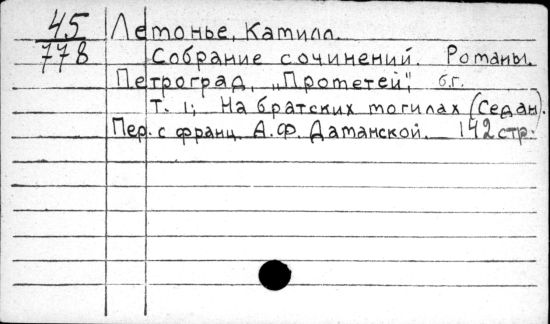 45
778
Лемонье, Камилл.
Собрание сочинений. Романы.
Петроград, „Прометей", б.г.
Т. 1; На братских могилах (Седан).
Пер. с франц. А.Ф. Даманской. 142 стр.